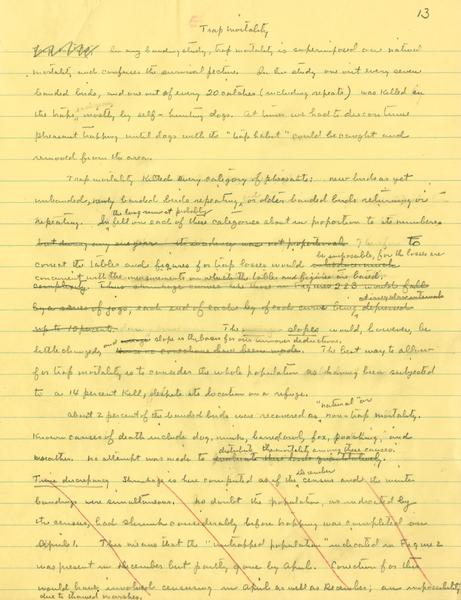 13
Trap mortality
In any banding study, trap mortality is superimposed on natural
mortality and confuses the survival picture. In this study one out every seven
banded birds, and one out of every 20 catches (including repeats) was killed in
the traps, mostly by self-hunting dogs. At times we had to discontinue
pheasant trapping until dogs with the "trap habit" could be caught and
removed from the area.
Trap mortality killed every category of pheasants: new birds as yet
unbanded, newly banded birds repeating, or older banded birds returning or
the long run at
repeating. It fell on each of these categories about in proportion to its numbers
but during any one year its incidence was not proportional. Therefore to
correct the tables and figures for trap losses would
be impossible, for the losses are
concurrent with the measurements on which the tables and figures are based.
Thus shrinkage curves like those in Figures 2 & 3 would fall
by a series of jogs, each end of each by of each curve being depressed
up to 10 percent. The slopes would, however, be
little changed, and slope is the basis for our deductions.
The best way to allow
for trap mortality is to consider the whole population as having been subjected
to a 14 percent kill, despite its location on a refuge.
"natural" or
About 2 percent of the banded birds were recovered as non-trap mortality.
Known causes of death include dog, mink, barn owl, fox, poaching, and
distribute the mortality among these causes.
weather. No attempt was made to
December
Time discrepancy. Shrinkage is here computed as if the census and the winter
bandings were simultaneous. No doubt the population, as indicated by
the census, had shrunk considerably before trapping was completed on
April 1. This means that the "untrapped population" indicated in Figure 2
was present in December but partly gone by April. Correction for this
would have involved censusing in April as well as December; an impossibility
due to thawed marshes.